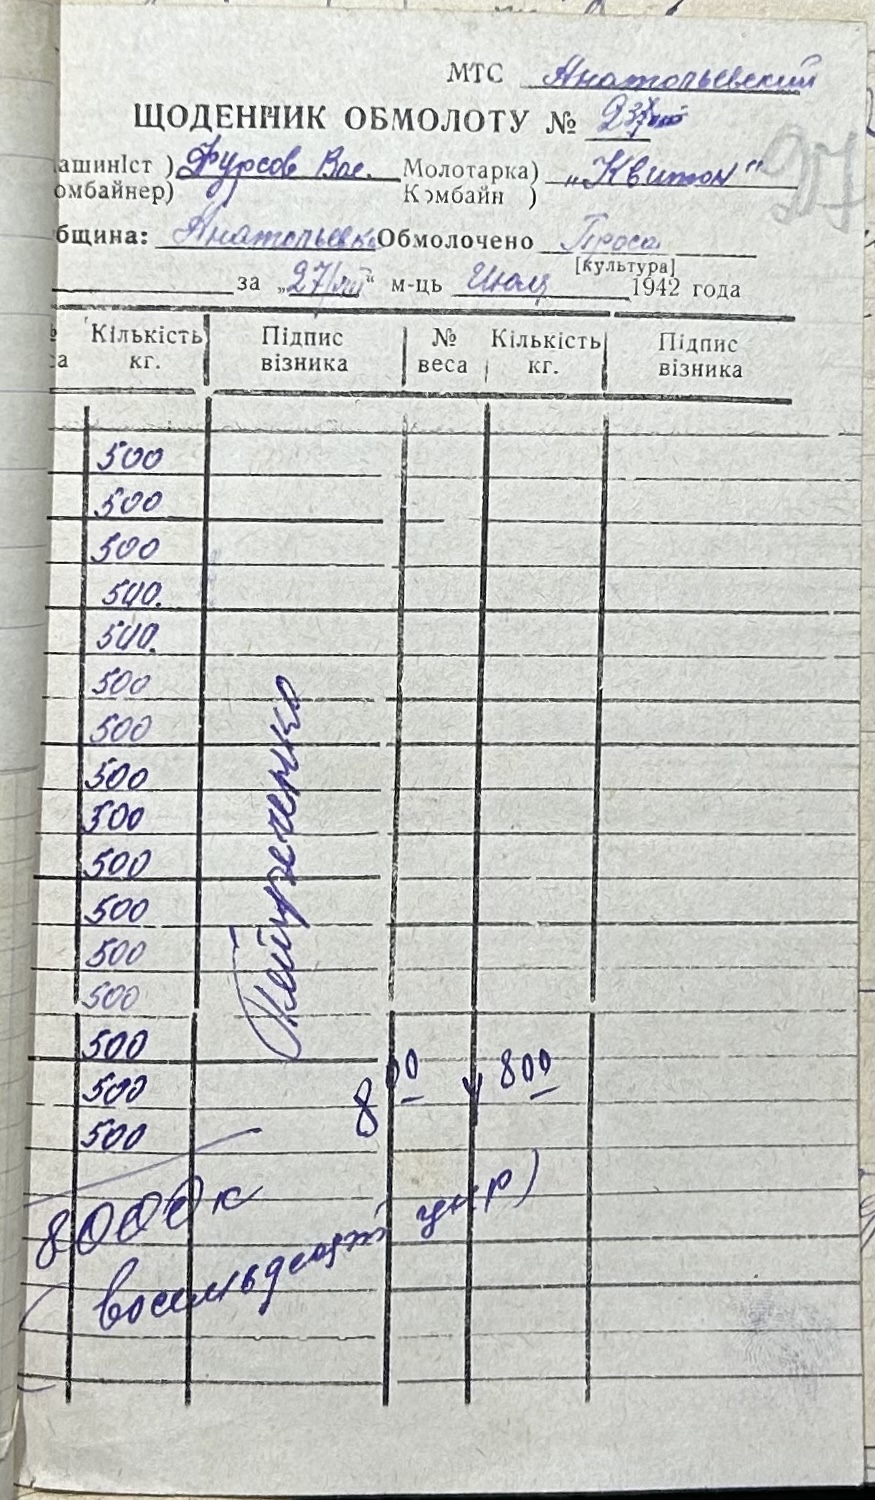 МТС Анатольевский
ЩОДЕННИК ОБМОЛОТУ № 23
ашиніст ) Фурсов Вас. Молотарка) „Квитон"
омбайнер) Комбайн )
27
бщина: Анатольевка Обмолочено Проса
[культура]
за „27/VII" м-ць Июль 1942 года
Кількість кг. Підпис візника № веса Кількість кг. Підпис візника
500
500
500
500.
500.
500
500
500
500
500
500
500
500
500
500
500
800 800
8000 к
восемьдесят цнр)